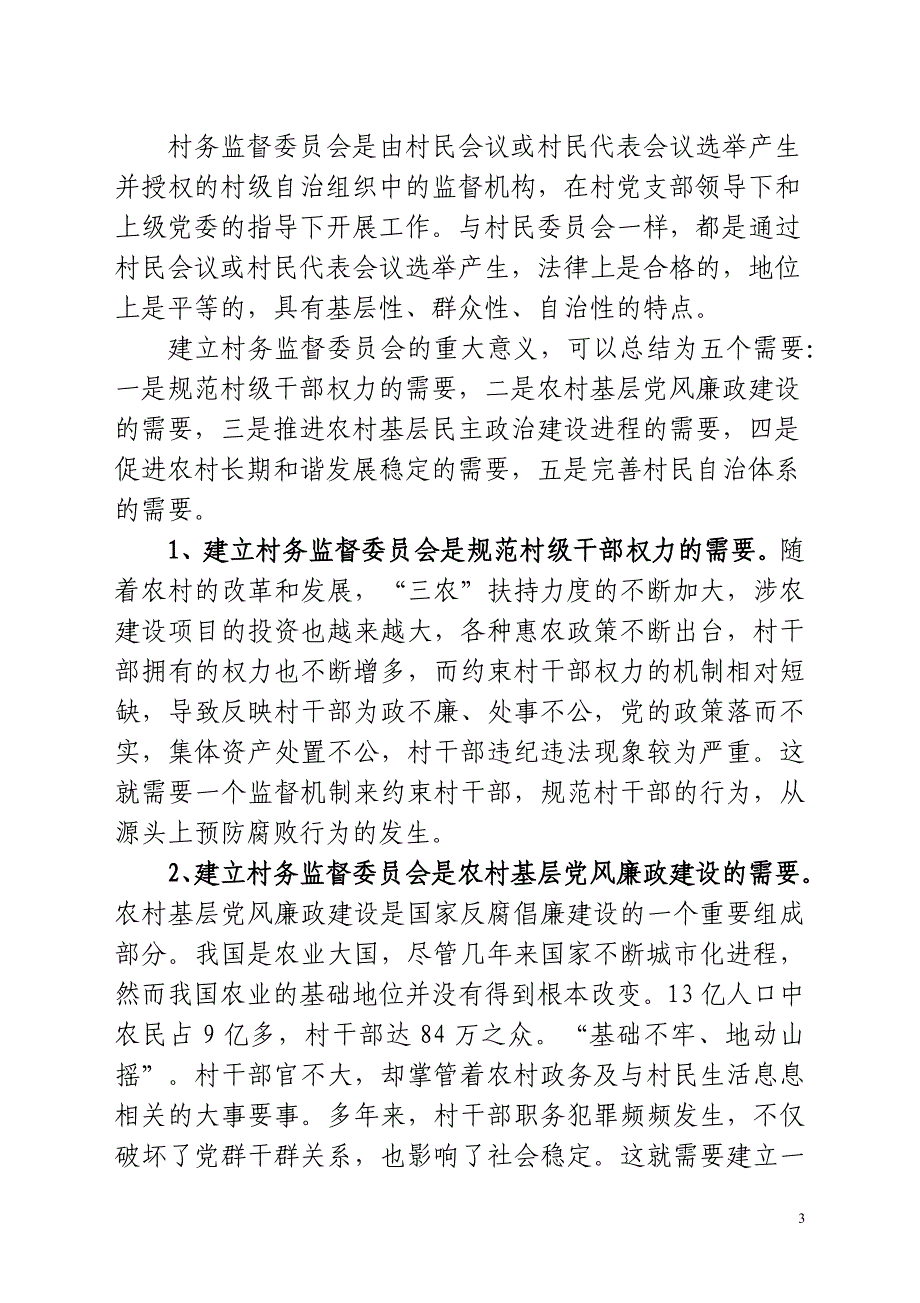 村务监督委员会是由村民会议或村民代表会议选举产生
并授权的村级自治组织中的监督机构，在村党支部领导下和
上级党委的指导下开展工作。与村民委员会一样，都是通过
村民会议或村民代表会议选举产生，法律上是合格的，地位
上是平等的，具有基层性、群众性、自治性的特点。
建立村务监督委员会的重大意义，可以总结为五个需要：
一是规范村级干部权力的需要，二是农村基层党风廉政建设
的需要，三是推进农村基层民主政治建设进程的需要，四是
促进农村长期和谐发展稳定的需要，五是完善村民自治体系
的需要。
1、建立村务监督委员会是规范村级干部权力的需要。随
着农村的改革和发展，“三农”扶持力度的不断加大，涉农
建设项目的投资也越来越大，各种惠农政策不断出台，村干
部拥有的权力也不断增多，而约束村干部权力的机制相对短
缺，导致反映村干部为政不廉、处事不公，党的政策落而不
实，集体资产处置不公，村干部违纪违法现象较为严重。这
就需要一个监督机制来约束村干部，规范村干部的行为，从
源头上预防腐败行为的发生。
2、建立村务监督委员会是农村基层党风廉政建设的需要。
农村基层党风廉政建设是国家反腐倡廉建设的一个重要组成
部分。我国是农业大国，尽管几年来国家不断城市化进程，
然而我国农业的基础地位并没有得到根本改变。13 亿人口中
农民占 9 亿多，村干部达 84 万之众。“基础不牢、地动山
摇”。村干部官不大，却掌管着农村政务及与村民生活息息
相关的大事要事。多年来，村干部职务犯罪频频发生，不仅
破坏了党群干群关系，也影响了社会稳定。这就需要建立一
3